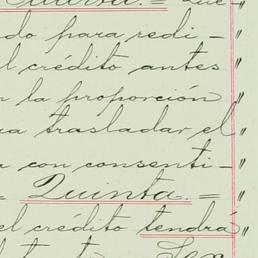 Cuarta. = Que-
do para redi-
l crédito antes
n la proporción
ua trasladar el
a con consenti-
= Quinta. =
el crédito tendrá